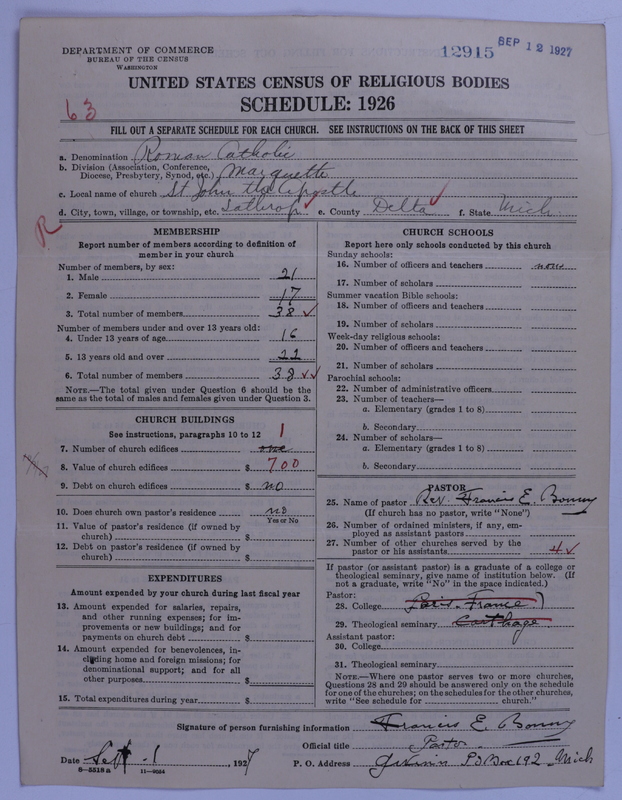 DEPARTMENT OF COMMERCE
BUREAU OF THE CENSUS
WASHINGTON
12915 SEP 12 1927
UNITED STATES CENSUS OF RELIGIOUS BODIES
SCHEDULE: 1926
63
FILL OUT A SEPARATE SCHEDULE FOR EACH CHURCH. SEE INSTRUCTIONS ON THE BACK OF THIS SHEET
a. Denomination Roman Catholic
b. Division (Association, Conference, Diocese, Presbytery, Synod, etc.) Marquette
c. Local name of church St John the Apostle
d. City, town, village, or township, etc. Lathrop e. County Delta f. State Mich
R
MEMBERSHIP
Report number of members according to definition of
member in your church
Number of members, by sex:
1. Male 21
2. Female 17
3. Total number of members 38 ✓
Number of members under and over 13 years old:
4. Under 13 years of age 16
5. 13 years old and over 22
6. Total number of members 38 ✓✓
NOTE.—The total given under Question 6 should be the
same as the total of males and females given under Question 3.
CHURCH BUILDINGS
See instructions, paragraphs 10 to 12 1
7. Number of church edifices one
8. Value of church edifices $ 700
9. Debt on church edifices $ no
10. Does church own pastor's residence no
Yes or No
11. Value of pastor's residence (if owned by
church) $
12. Debt on pastor's residence (if owned by
church) $
EXPENDITURES
Amount expended by your church during last fiscal year
13. Amount expended for salaries, repairs,
and other running expenses; for im-
provements or new buildings; and for
payments on church debt $
14. Amount expended for benevolences, in-
cluding home and foreign missions; for
denominational support; and for all
other purposes $
15. Total expenditures during year $
CHURCH SCHOOLS
Report here only schools conducted by this church
Sunday schools:
16. Number of officers and teachers none
17. Number of scholars
Summer vacation Bible schools:
18. Number of officers and teachers
19. Number of scholars
Week-day religious schools:
20. Number of officers and teachers
21. Number of scholars
Parochial schools:
22. Number of administrative officers
23. Number of teachers—
a. Elementary (grades 1 to 8)
b. Secondary
24. Number of scholars—
a. Elementary (grades 1 to 8)
b. Secondary
PASTOR
25. Name of pastor Rev. Francis E. Bonny
(If church has no pastor, write "None")
26. Number of ordained ministers, if any, em-
ployed as assistant pastors
27. Number of other churches served by the
pastor or his assistants 4 ✓
If pastor (or assistant pastor) is a graduate of a college or
theological seminary, give name of institution below. (If
not a graduate, write "No" in the space indicated.)
Pastor:
28. College Paris-France
29. Theological seminary Carthage
Assistant pastor:
30. College
31. Theological seminary
NOTE.—Where one pastor serves two or more churches,
Questions 28 and 29 should be answered only on the schedule
for one of the churches; on the schedules for the other churches,
write "See schedule for church."
Signature of person furnishing information Francis E. Bonny
Official title Pastor
Date Sept. 1, 1927 P. O. Address Gwinn PO Box 192 Mich
8—5518 a 11—9034